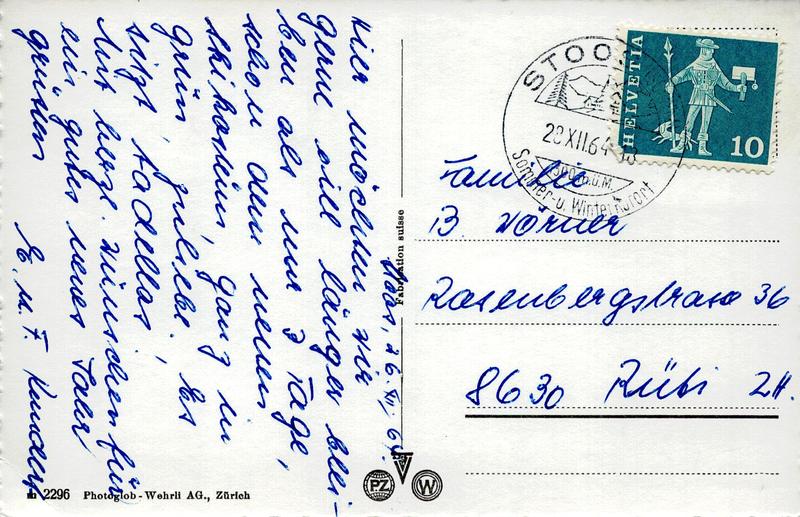 Stoos, 26. XII. 64.
Hier möchten wir
gerne viel länger blei-
ben als nur 3 Tage,
schon dem neuen
Skikostüm, ganz in
grün zuliebe! Es
sitzt tadellos!
Mit herzl. Wünschen für
ein gutes neues Jahr
grüssen
E. u. F.
STOOS
28.XII.64
1300 m ü.M.
Sommer- u. Winterkurort
HELVETIA
10
Familie
B. Wörner
Rosenbergstrasse 36
8630 Rüti ZH.
Fabrication suisse
2296 Photoglob-Wehrli AG., Zürich
PZ W